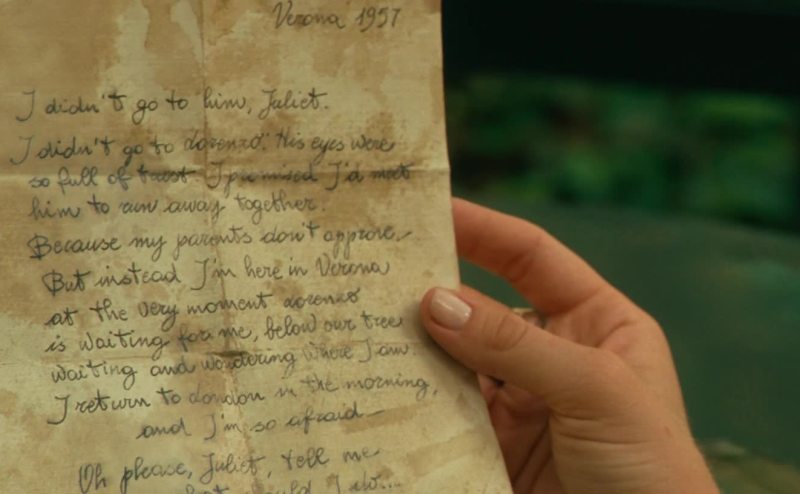 Verona 1957
I didn't go to him, Juliet.
I didn't go to Lorenzo. His eyes were
so full of trust. I promised I'd meet
him to run away together.
Because my parents don't approve.
But instead I'm here in Verona
at the very moment Lorenzo
is waiting for me, below our tree
waiting and wondering where I am.
I return to London in the morning,
and I'm so afraid
Oh please, Juliet, tell me
should I do...